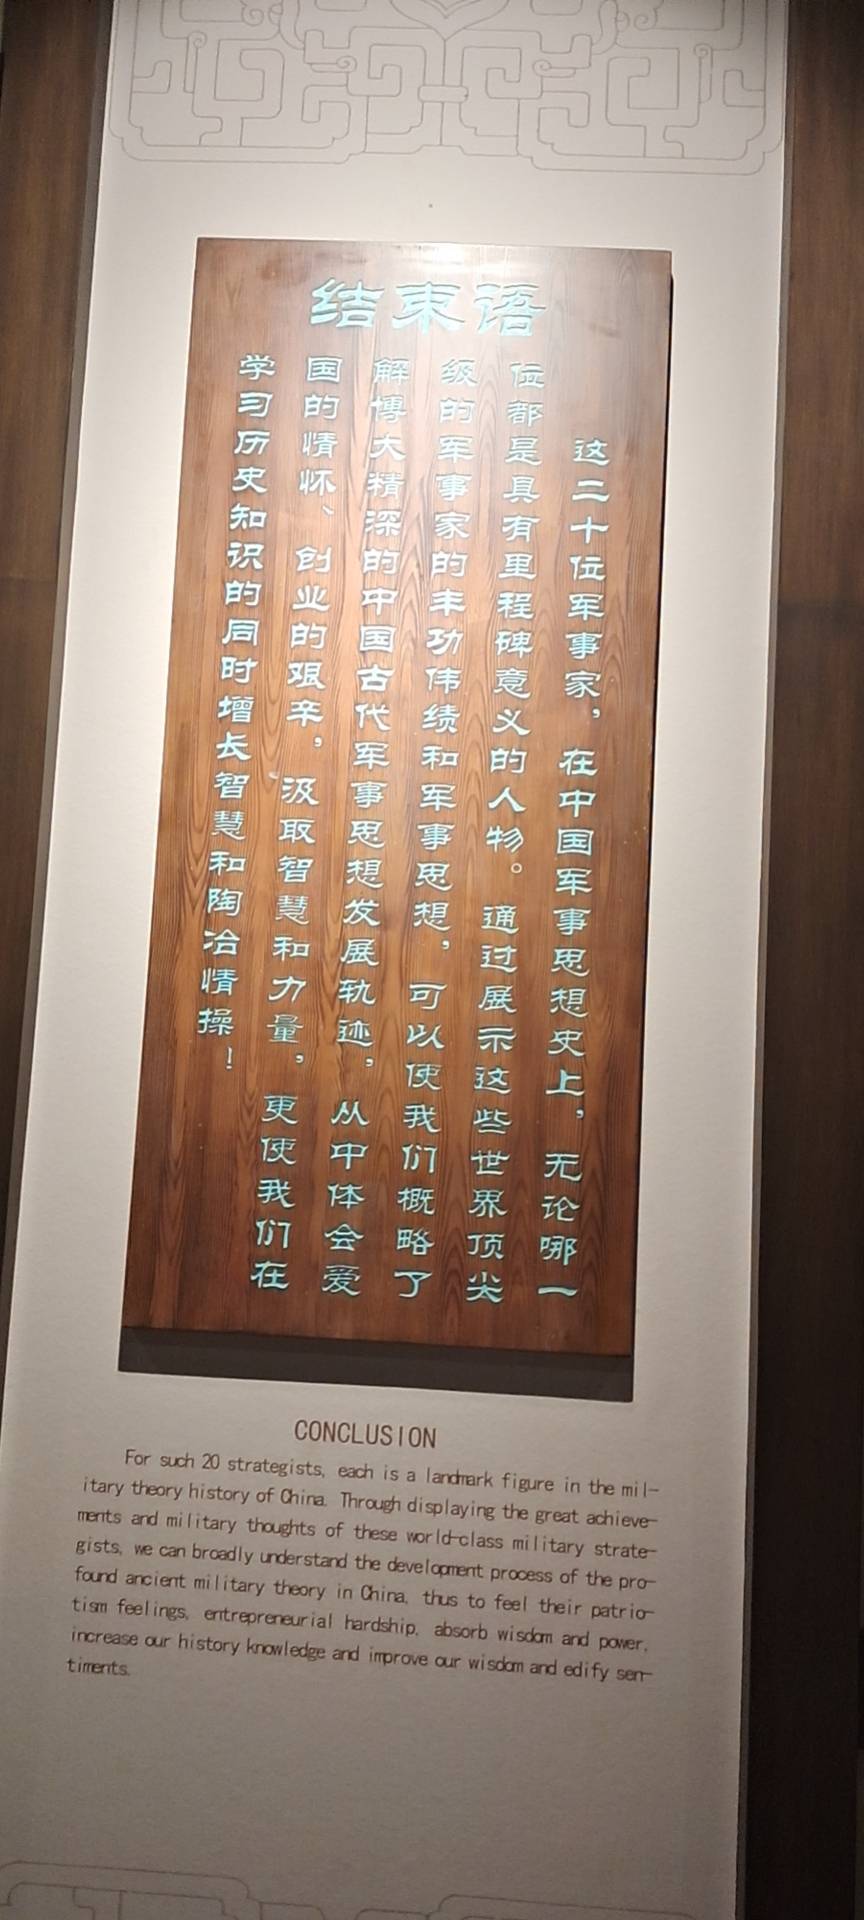 结束语
这二十位军事家，在中国军事思想史上，无论哪一
位都是具有里程碑意义的人物。通过展示这些世界顶尖
级的军事家的丰功伟绩和军事思想，可以使我们概略了
解博大精深的中国古代军事思想发展轨迹，从中体会爱
国的情怀、创业的艰辛，汲取智慧和力量，更使我们在
学习历史知识的同时增长智慧和陶冶情操！
CONCLUSION
For such 20 strategists, each is a landmark figure in the mil-
itary theory history of China. Through displaying the great achieve-
ments and military thoughts of these world-class military strate-
gists, we can broadly understand the development process of the pro-
found ancient military theory in China, thus to feel their patrio-
tism feelings, entrepreneurial hardship, absorb wisdom and power,
increase our history knowledge and improve our wisdom and edify sen-
timents.